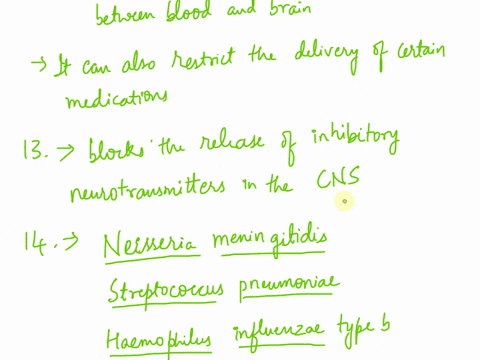 between blood and brain
→ It can also restrict the delivery of certain
medications
13. → blocks the release of inhibitory
neurotransmitters in the CNS
14. → Neisseria meningitidis
Streptococcus pneumoniae
Haemophilus influenzae type b